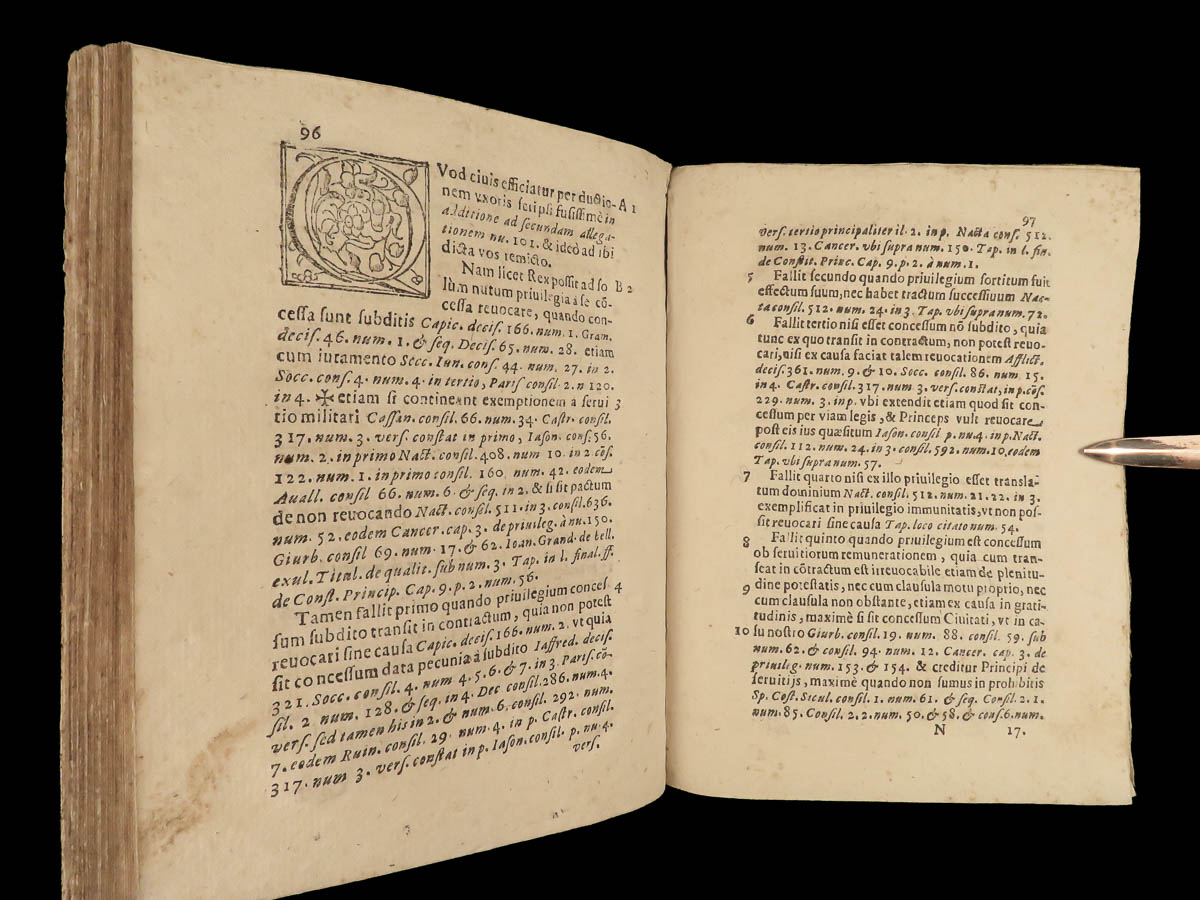 96
QVod ciuis efficiatur per ductio- A 1
nem vxoris scripsi fusissimè in
additione ad secundam allega-
tionem nu. 101. & ideò ad ibi
dicta vos remicto.
Nam licet Rex possit ad so B 2
lùm nutum priuilegia à se cō-
cessa reuocare, quando con-
cessa sunt subditis Capic. decis. 166. num. 1. Gram.
decis. 46. num. 1. & seq. Decis. 65. num. 28. etiam
cum iutamento Socc. Iun. cons. 44. num. 27. in 2.
Socc. cons. 4. num. 4. in tertio, Paris consil. 2. n 120.
in 4. ✠ etiam si contineant exemptionem à serui 3
tio militari Cassan. consil. 66. num. 34. Castr. consil.
317. num. 3. vers. constat in primo, Iason. cons. 56.
num. 2. in primo Nact. consil. 408. num. 10. in 2 cōs.
122. num. 1. in primo consil. 160, num. 42. eodem
Auall. consil 66. num. 6. & seq. in 2. & si sit pactum
de non reuocando Nact. consil. 511. in 3. consil. 636.
num. 52. eodem Cancer. cap. 3. de priuileg. à nu. 150.
Giurb. consil 69. num. 17. & 62. Ioan. Grand. de bell.
exul. Tital. de qualit. sub num. 3. Tap. in l. final. ff.
de Const. Princip. Cap. 9. p. 2. num. 56.
Tamen fallit primo quando priuilegium conces 4
sum subdito transit in contractum, quia non potest
reuocari sine causa Capic. decis. 166. num. 2. vt quia
sit concessum data pecunia à subdito Iaffred. decis.
321. Socc. consil. 4. num 4. 5. 6. & 7. in 3. Paris. cō-
sil. 2 num. 128. & seq. in 4. Dec consil. 286. num. 4.
vers. sed tamen his in 2. & num. 6. consil. 292. num.
7. eodem Ruin. consil. 29. num. 4. in p. Castr. consil.
317. num 3. vers. constat in p. Iason. consil. p. nu. 4.
vers.
97
vers. tertio principaliter il. 2. in p. Nacta cons. 512.
num. 13. Cancer. vbi supra num. 150. Tap. in l. fin.
de Constit. Princ. Cap. 9. p. 2. à num. 1.
5 Fallit secundo quando priuilegium sortitum fuit
effectum suum, nec habet tractum successiuum Nac-
ta consil. 512. num. 24. in 3. Tap. vbi supra num. 72.
6 Fallit tertio nisi esset concessum nō subdito, quia
tunc ex quo transit in contractum, non potest reuo-
cari, nisi ex causa faciat talem reuocationem Afflict.
decis. 361. num. 9. & 10. Socc. consil. 86. num. 15.
in 4. Castr. consil. 317. num 3. vers. constat, in p. cōs.
229. num. 3. in p. vbi extendit etiam quod sit con-
cessum per viam legis, & Princeps vult reuocare
post eis ius quæsitum Iason. consil p. nu. 4. in p. Nact.
consil. 112. num. 24. in 3. consil. 592. num. 10. eodem
Tap. vbi supra num. 57.
7 Fallit quarto nisi ex illo priuilegio esset transla-
tum dominium Nact. consil. 512. num. 21. 22. in 3.
exemplificat in priuilegio immunitatis, vt non pos-
sit reuocari sine causa Tap. loco citato num. 54.
8 Fallit quinto quando priuilegium est concessum
ob seruitiorum remunerationem, quia cum tran-
seat in cōtractum est irreuocabile etiam de plenitu-
9 dine potestatis, nec cum clausula motu proprio, nec
cum clausula non obstante, etiam ex causa in grati-
tudinis, maximè si sit concessum Ciuitati, vt in ca-
10 su nostro Giurb. consil. 19. num. 88. consil. 59. sub
num. 62. & consil. 94. num. 12. Cancer. cap. 3. de
priuileg. num. 153. & 154. & creditur Principi de
seruitijs, maximè quando non sumus in prohibitis
Sp. Cost. Sicul. consil. 1. num. 61. & seq. Consil. 2. 1.
num. 85. Consil. 2. 2. num. 50. & 58. & cons. 6. num.
N 17.